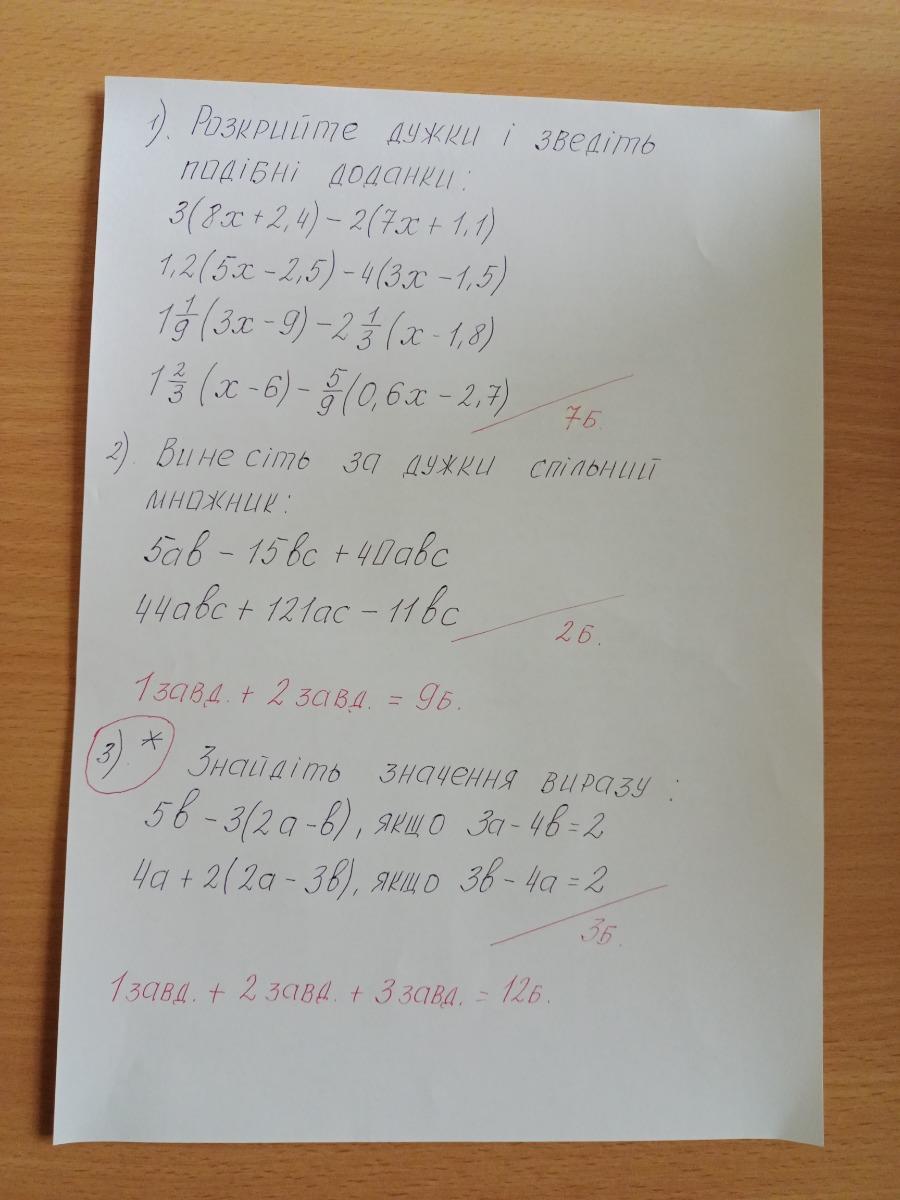 1). Розкрийте дужки і зведіть
подібні доданки:
3(8x+2,4)-2(7x+1,1)
1,2(5x-2,5)-4(3x-1,5)
1 1/9 (3x-9)-2 1/3 (x-1,8)
1 2/3 (x-6)- 5/9 (0,6x-2,7)
7б.
2). Винесіть за дужки спільний
множник:
5ав - 15вс + 40авс
44авс + 121ас - 11вс
2б.
1 завд. + 2 завд. = 9б.
3).* Знайдіть значення виразу:
5в - 3(2а-в), якщо 3а-4в=2
4а + 2(2а-3в), якщо 3в-4а=2
3б.
1 завд. + 2 завд. + 3 завд. = 12б.